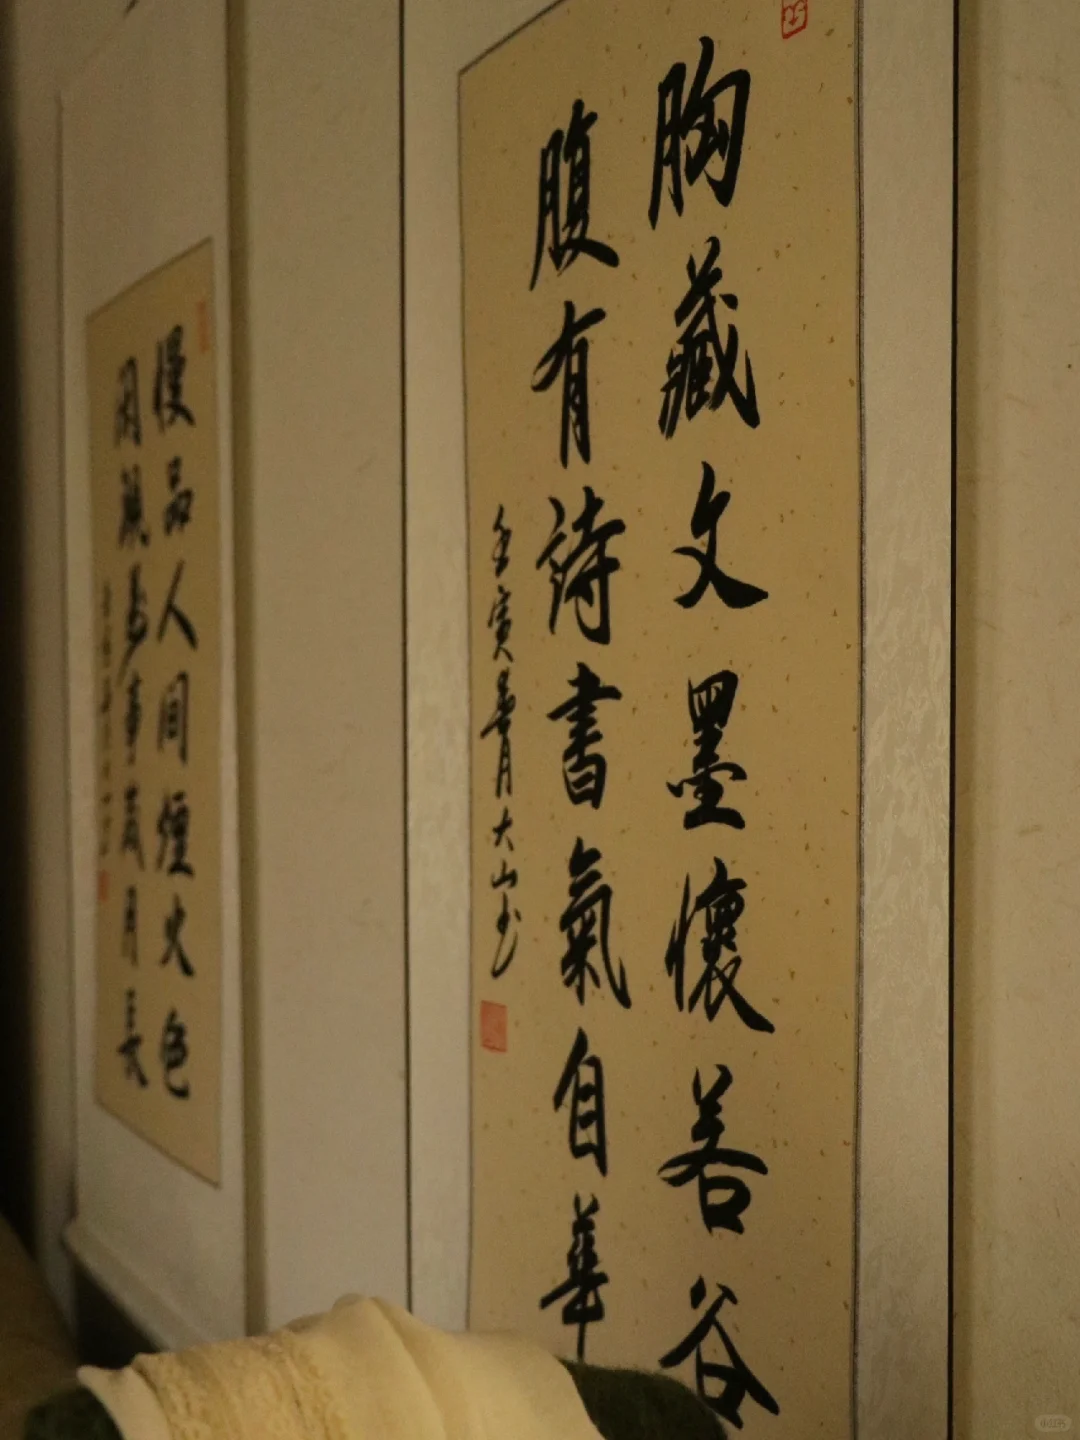 胸藏文墨懷若谷
腹有詩書氣自華
壬寅春月大山书
慢品人间煙火色
闲觀事歲月長
小红书